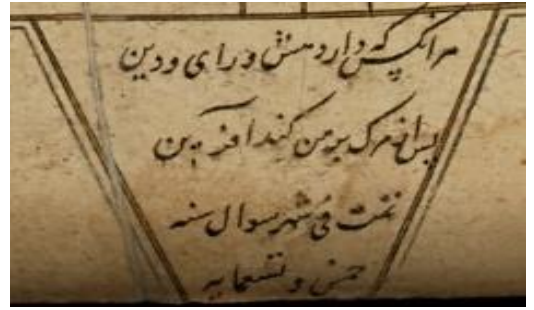 هر انکس که دارد هش و رای و دین
پس از مرک بر من کند افرین
تمت فی شهر شوال سنه
خمس و تسعمایه